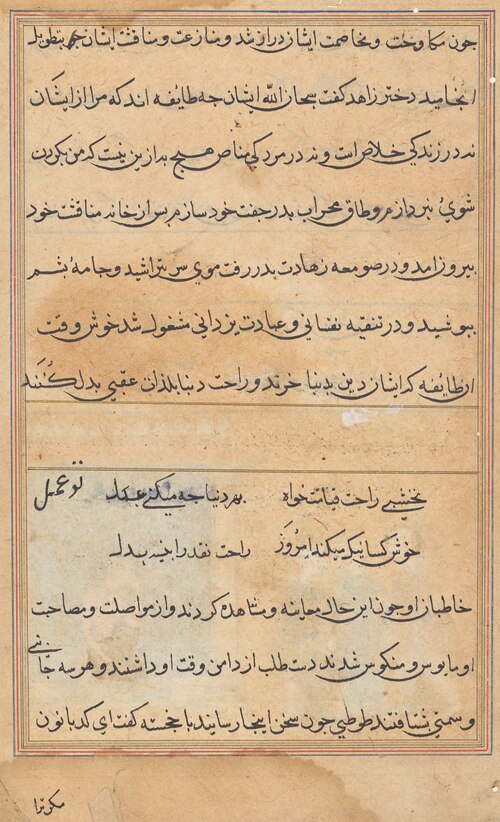 جون مکاوحت و مخاصمت ایشان دراز شد و منازعت و مناقشت ایشان بتطویل
انجامید دختر زاهد کفت سبحان الله ایشان جه طایفه اند که مرا از ایشان
نه در زندکی خلاص است و نه در مردکی مناص هیچ به از این نیست که من بکردن
شوی نپردازم و طاق محراب بدر جفت خود سازم پس از خانه مناقشت خود
بیرون آمد و در صومعه زهادت بدر رفت موی سر بتراشید و جامه پشم
بپوشید و در تنقیه نفسانی و عبادت یزدانی مشغول شد خوش وقت
ان طایفه که ایشان دین بدنیا خرند و راحت دنیا بلذات عقبی بدل کنند
نخشبی راحت قیامت خواه بهر دنیا جه میکنی تو عمل
خوش کسانیکه میکنند امروز راحت نقد را بنسیه بدل
خاطبان او جون این حال معاینه و مشاهده کردند و از مواصلت و مصاحبت
او مایوس و منکوس شدند دست طلب از دامن وقت او داشتند و هر سه جانبی
و سمتی شتافتند طوطی جون سخن اینجا رسانید با خجسته کفت ای کدبانو
مکر ترا